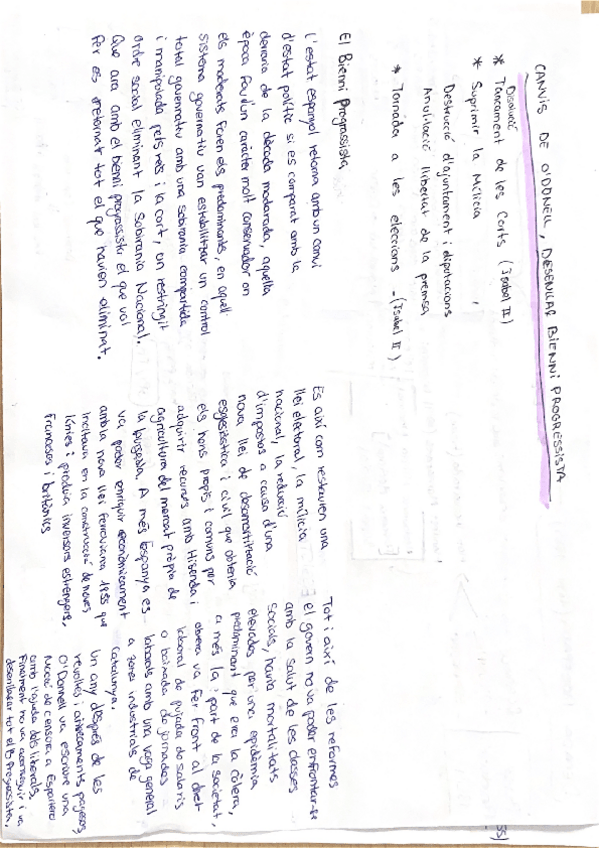 CANVIS DE O'DONELL, DESENLLAÇ BIENNI PROGRESSISTA
Disolució
* Tancament de les Corts (Isabel II)
* Suprimir la Milícia,
Destrucció d'ajuntament i diputacions
Anul·lació llibertat de la premsa
* Tornada a les eleccions - (Isabel II)
El Bienni Progressista
L'estat espanyol retorna amb un canvi
d'estat polític si es comparat amb la
darraria de la dècada moderada, aquella
època fou d'un caràcter molt conservador on
els moderats foren els predominants, en aquell
sistema governatiu van establitzar un control
total governatiu amb una sobirania compartida
i manipolada pels reis i la cort, on restringit
ordre social eliminant la Sobirania Nacional.
Que ara amb el bienni progressista el que vol
fer es retornar tot el que havien eliminat.
Es així com restauren una
llei electoral, la milícia
nacional, la reducció
d'impostos a causa d'una
nova llei de desamortització
esglesiàstica i civil que obtenia
els bens propis i comuns per
adquirir recursos amb Hisenda i
agricultura del mercat pròpia de
la burgesia. A més Espanya es
va poder enriquir econòmicament
amb la nova llei ferroviaria 1855 que
incitava en la construcció de noves
línies i produïa inversors estrangers,
francesos i britànics
Tot i així de les reformes
el govern no va poder enfrontar-se
amb la salut de les classes
socials, havia mortalitats
elevades per una epidèmia
predominant que era la còlera,
a més la part de la societat,
obrera va fer front al dret
laboral de pujada de salaris
o baixada de jornades
laborals amb una vaga general
a zona industrials de
Catalunya.
Un any després de les
revoltes i amb pagesos,
O'Donnell va escriure una
Moció de censura a Espartero
amb l'ajuda dels liberals.
Finalment ho va aconseguir i va
desenllaçar tot el B. Progressista.
55)